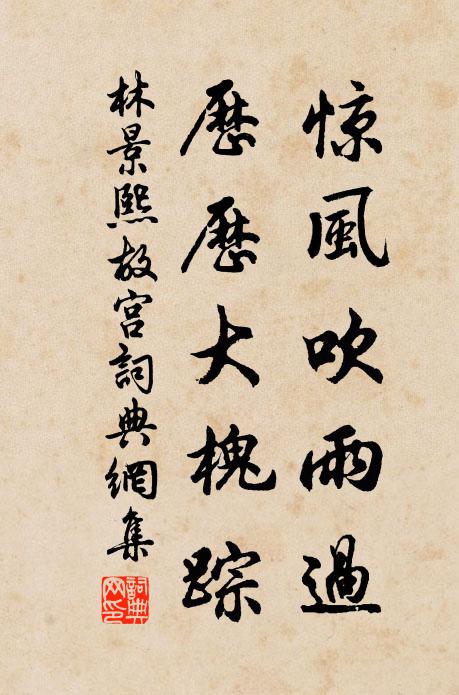 惊風吹雨過
歷歷大槐踪
林景熙故宫詞典網集
詞典网印